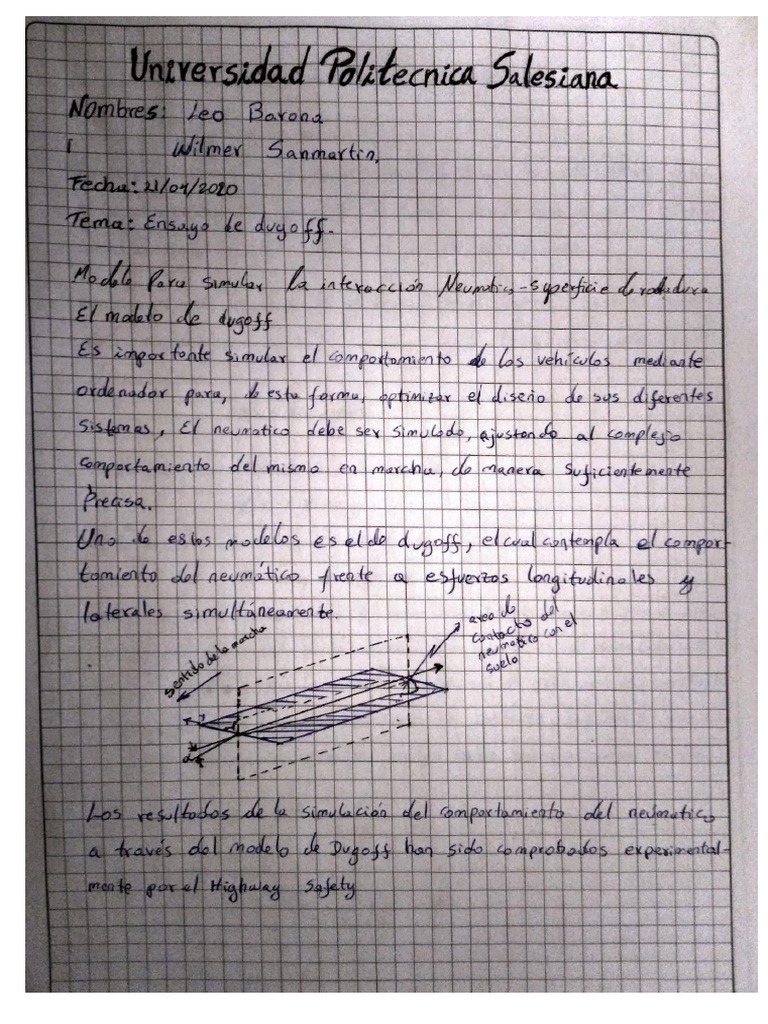 Universidad Politecnica Salesiana
Nombres: Leo Barona
Wilmer Sanmartin.
Fecha: 21/04/2020
Tema: Ensayo de dugoff.
Modelo Para simular la interacción Neumatico-superficie de rodadura
El modelo de dugoff
Es importante simular el comportamiento de los vehículos mediante
ordenador para, de esta forma, optimizar el diseño de sus diferentes
sistemas, El neumatico debe ser simulado, ajustando al complejo
comportamiento del mismo en marcha, de manera suficientemente
Precisa.
Uno de estos modelos es el de dugoff, el cual contempla el compor-
tamiento del neumático frente a esfuerzos longitudinales y
laterales simultáneamente.
sentido de la marcha
area de
contacto del
neumatico con el
suelo
α
Los resultados de la simulación del comportamiento del neumatico
a través del modelo de Dugoff han sido comprobados experimental-
mente por el Highway Safety